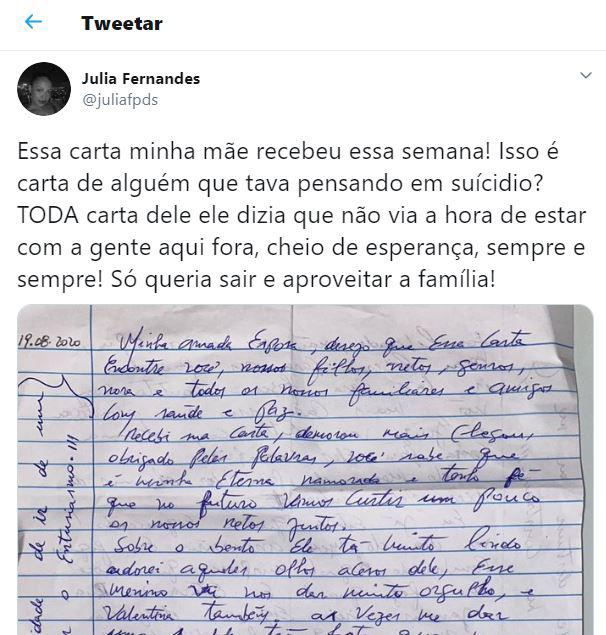 Tweetar
Julia Fernandes
@juliafpds
Essa carta minha mãe recebeu essa semana! Isso é
carta de alguém que tava pensando em suícidio?
TODA carta dele ele dizia que não via a hora de estar
com a gente aqui fora, cheio de esperança, sempre e
sempre! Só queria sair e aproveitar a família!
19.08.2020
Minha amada Esposa, desejo que Essa Carta
Encontre você, nossos filhos, netos, genros,
nora e todos os nossos familiares e amigos
com saúde e Paz.
Recebi sua Carta, demorou mais Chegou,
obrigado Pelas Palavras, você sabe que
é minha Eterna namorada e tenho fé
que no futuro Vamos Curtir um pouco
os nossos netos juntos.
Sobre o bento Ele tá muito lindo
adorei aqueles olhos acesos dele, Esse
menino vai nos dar muito orgulho, e
Valentina também, as vezes me dar
uma
idade de ir de um
o Entusiasmo!!!